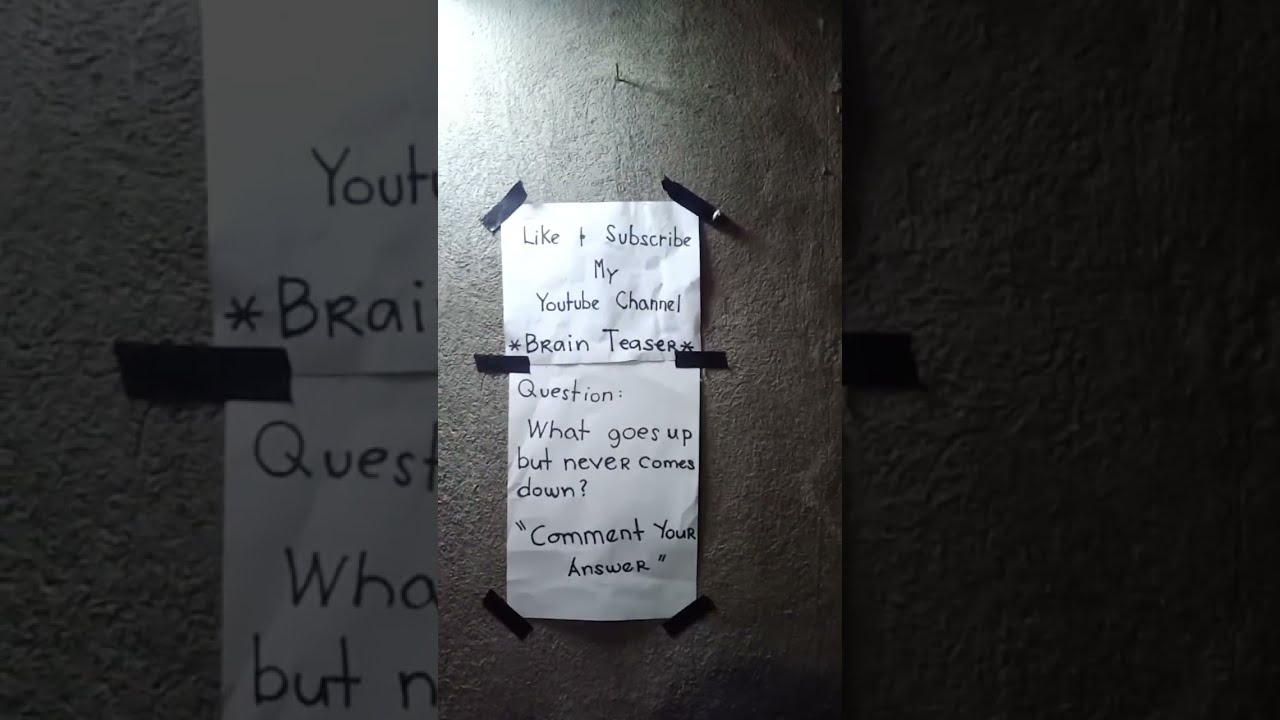 Like & Subscribe
My
Youtube Channel
*Brain Teaser*
Question:
What goes up
but never comes
down?
"Comment Your
Answer"